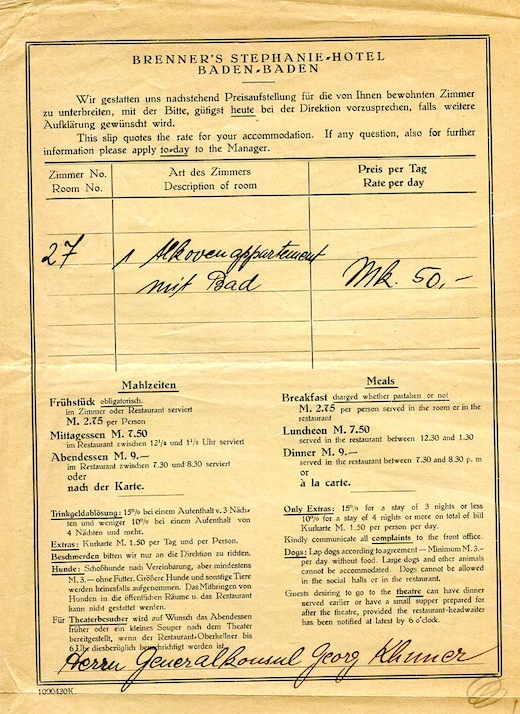 BRENNER'S STEPHANIE-HOTEL
BADEN-BADEN
Wir gestatten uns nachstehend Preisaufstellung für die von Ihnen bewohnten Zimmer
zu unterbreiten, mit der Bitte, gütigst heute bei der Direktion vorzusprechen, falls weitere
Aufklärung gewünscht wird.
This slip quotes the rate for your accommodation. If any question, also for further
information please apply to=day to the Manager.
Zimmer No.
Room No.
Art des Zimmers
Description of room
Preis per Tag
Rate per day
27
1 Alkovenappartement
mit Bad
Mk. 50,-
Mahlzeiten
Frühstück obligatorisch.
im Zimmer oder Restaurant serviert
M. 2.75 per Person
Mittagessen M. 7.50
im Restaurant zwischen 12½ und 1½ Uhr serviert
Abendessen M. 9.—
im Restaurant zwischen 7.30 und 8.30 serviert
oder
nach der Karte.
Trinkgeldablösung: 15% bei einem Aufenthalt v. 3 Näch-
ten und weniger 10% bei einem Aufenthalt von
4 Nächten und mehr.
Extras: Kurkarte M. 1.50 per Tag und per Person.
Beschwerden bitten wir nur an die Direktion zu richten.
Hunde: Schoßhunde nach Vereinbarung, aber mindestens
M. 3.— ohne Futter. Größere Hunde und sonstige Tiere
werden keinesfalls aufgenommen. Das Mitbringen von
Hunden in die öffentlichen Räume u. das Restaurant
kann nicht gestattet werden.
Für Theaterbesucher wird auf Wunsch das Abendessen
früher oder ein kleines Souper nach dem Theater
bereitgestellt, wenn der Restaurant-Oberkellner bis
6 Uhr diesbezüglich benachrichtigt worden ist.
Meals
Breakfast charged whether partaken or not
M. 2.75 per person served in the room or in the
restaurant
Luncheon M. 7.50
served in the restaurant between 12.30 and 1.30
Dinner M. 9.—
served in the restaurant between 7.30 and 8.30 p. m
or
à la carte.
Only Extras: 15% for a stay of 3 nights or less
10% for a stay of 4 nights or more on total of bill
Kurkarte M. 1.50 per person per day.
Kindly communicate all complaints to the front office.
Dogs: Lap dogs according to agreement — Minimum M. 3.-
per day without food. Large dogs and other animals
cannot be accommodated. Dogs cannot be allowed
in the social halls or in the restaurant.
Guests desiring to go to the theatre can have dinner
served earlier or have a small supper prepared for
after the theatre, provided the restaurant-headwaiter
has been notified at latest by 6 o'clock.
Herrn Generalkonsul Georg Khuner